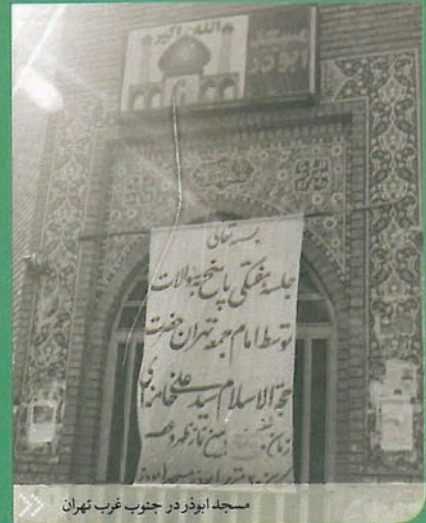 الله اکبر
مسجد
ابوذر
بسمه تعالی
جلسه هفتگی پاسخ به سوالات
توسط امام جمعه تهران حضرت
حجة الاسلام سید علی خامنه‌ای
زمان: بین نماز ظهر و عصر
مسجد ابوذر
مسجد ابوذر در جنوب غرب تهران